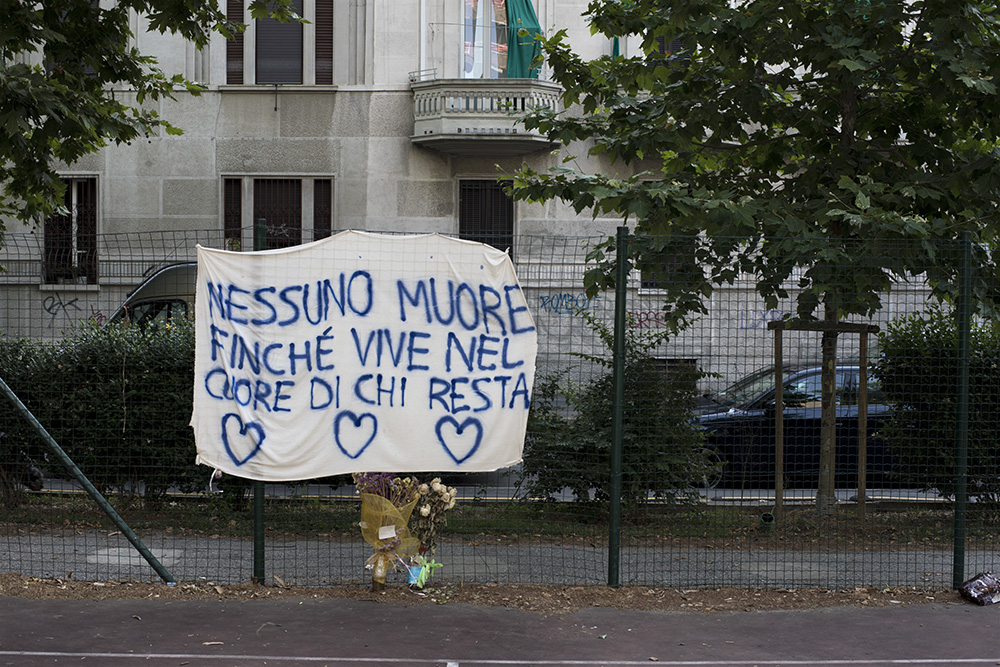 NESSUNO MUORE
FINCHÉ VIVE NEL
CUORE DI CHI RESTA